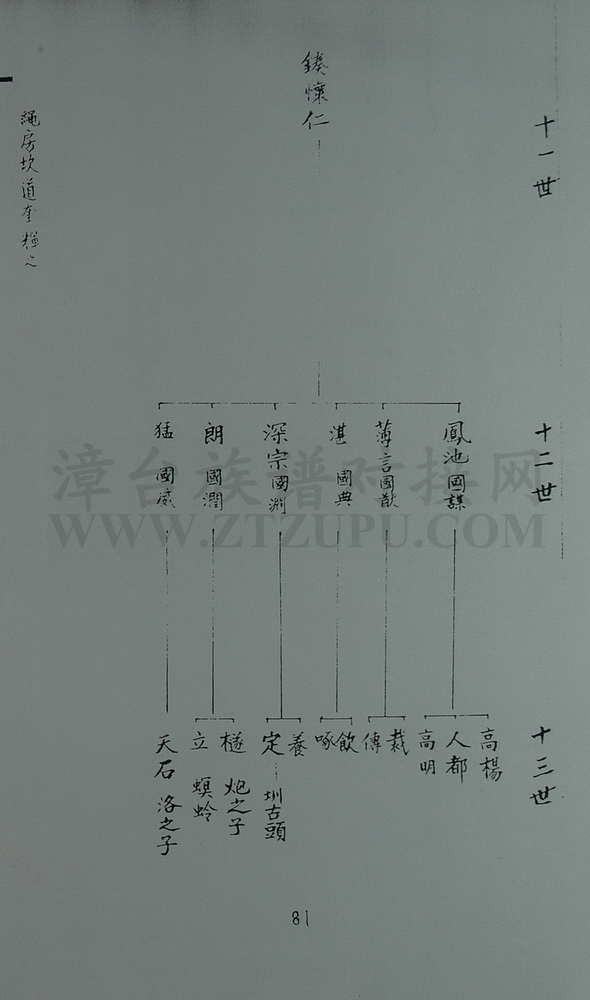 十一世
鍨懷仁
繩房坎道奎
十二世
鳳池國謀
薄言國猷
湛 國典
深宗國淵
朗 國潤
猛 國威
漳台族谱对接网
WWW.ZTZUPU.COM
十三世
高楊
人都
高明
裁
傳
飲
啄
養
定 圳古頭
樾 炮之子
立 螟蛉
天石 洛之子
81